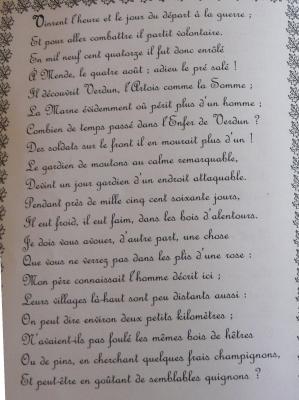 Vinrent l'heure et le jour du départ à la guerre ;
Et pour aller combattre il partit volontaire.
En mil neuf cent quatorze il fut donc enrôlé
À Mende, le quatre août ; adieu le pré salé !
Il découvrit Verdun, l'Artois comme la Somme ;
La Marne évidemment où périt plus d'un homme ;
Combien de temps passé dans l'Enfer de Verdun ?
Des soldats sur le front il en mourait plus d'un !
Le gardien de moutons au calme remarquable,
Devint un jour gardien d'un endroit attaquable.
Pendant près de mille cinq cent soixante jours,
Il eut froid, il eut faim, dans les bois d'alentours.
Je dois vous avouer, d'autre part, une chose
Que vous ne verrez pas dans les plis d'une rose :
Mon père connaissait l'homme décrit ici ;
Leurs villages là-haut sont peu distants aussi :
On peut dire environ deux petits kilomètres ;
N'avaient-ils pas foulé les mêmes bois de hêtres
Ou de pins, en cherchant quelques frais champignons,
Et peut-être en goûtant de semblables quignons ?